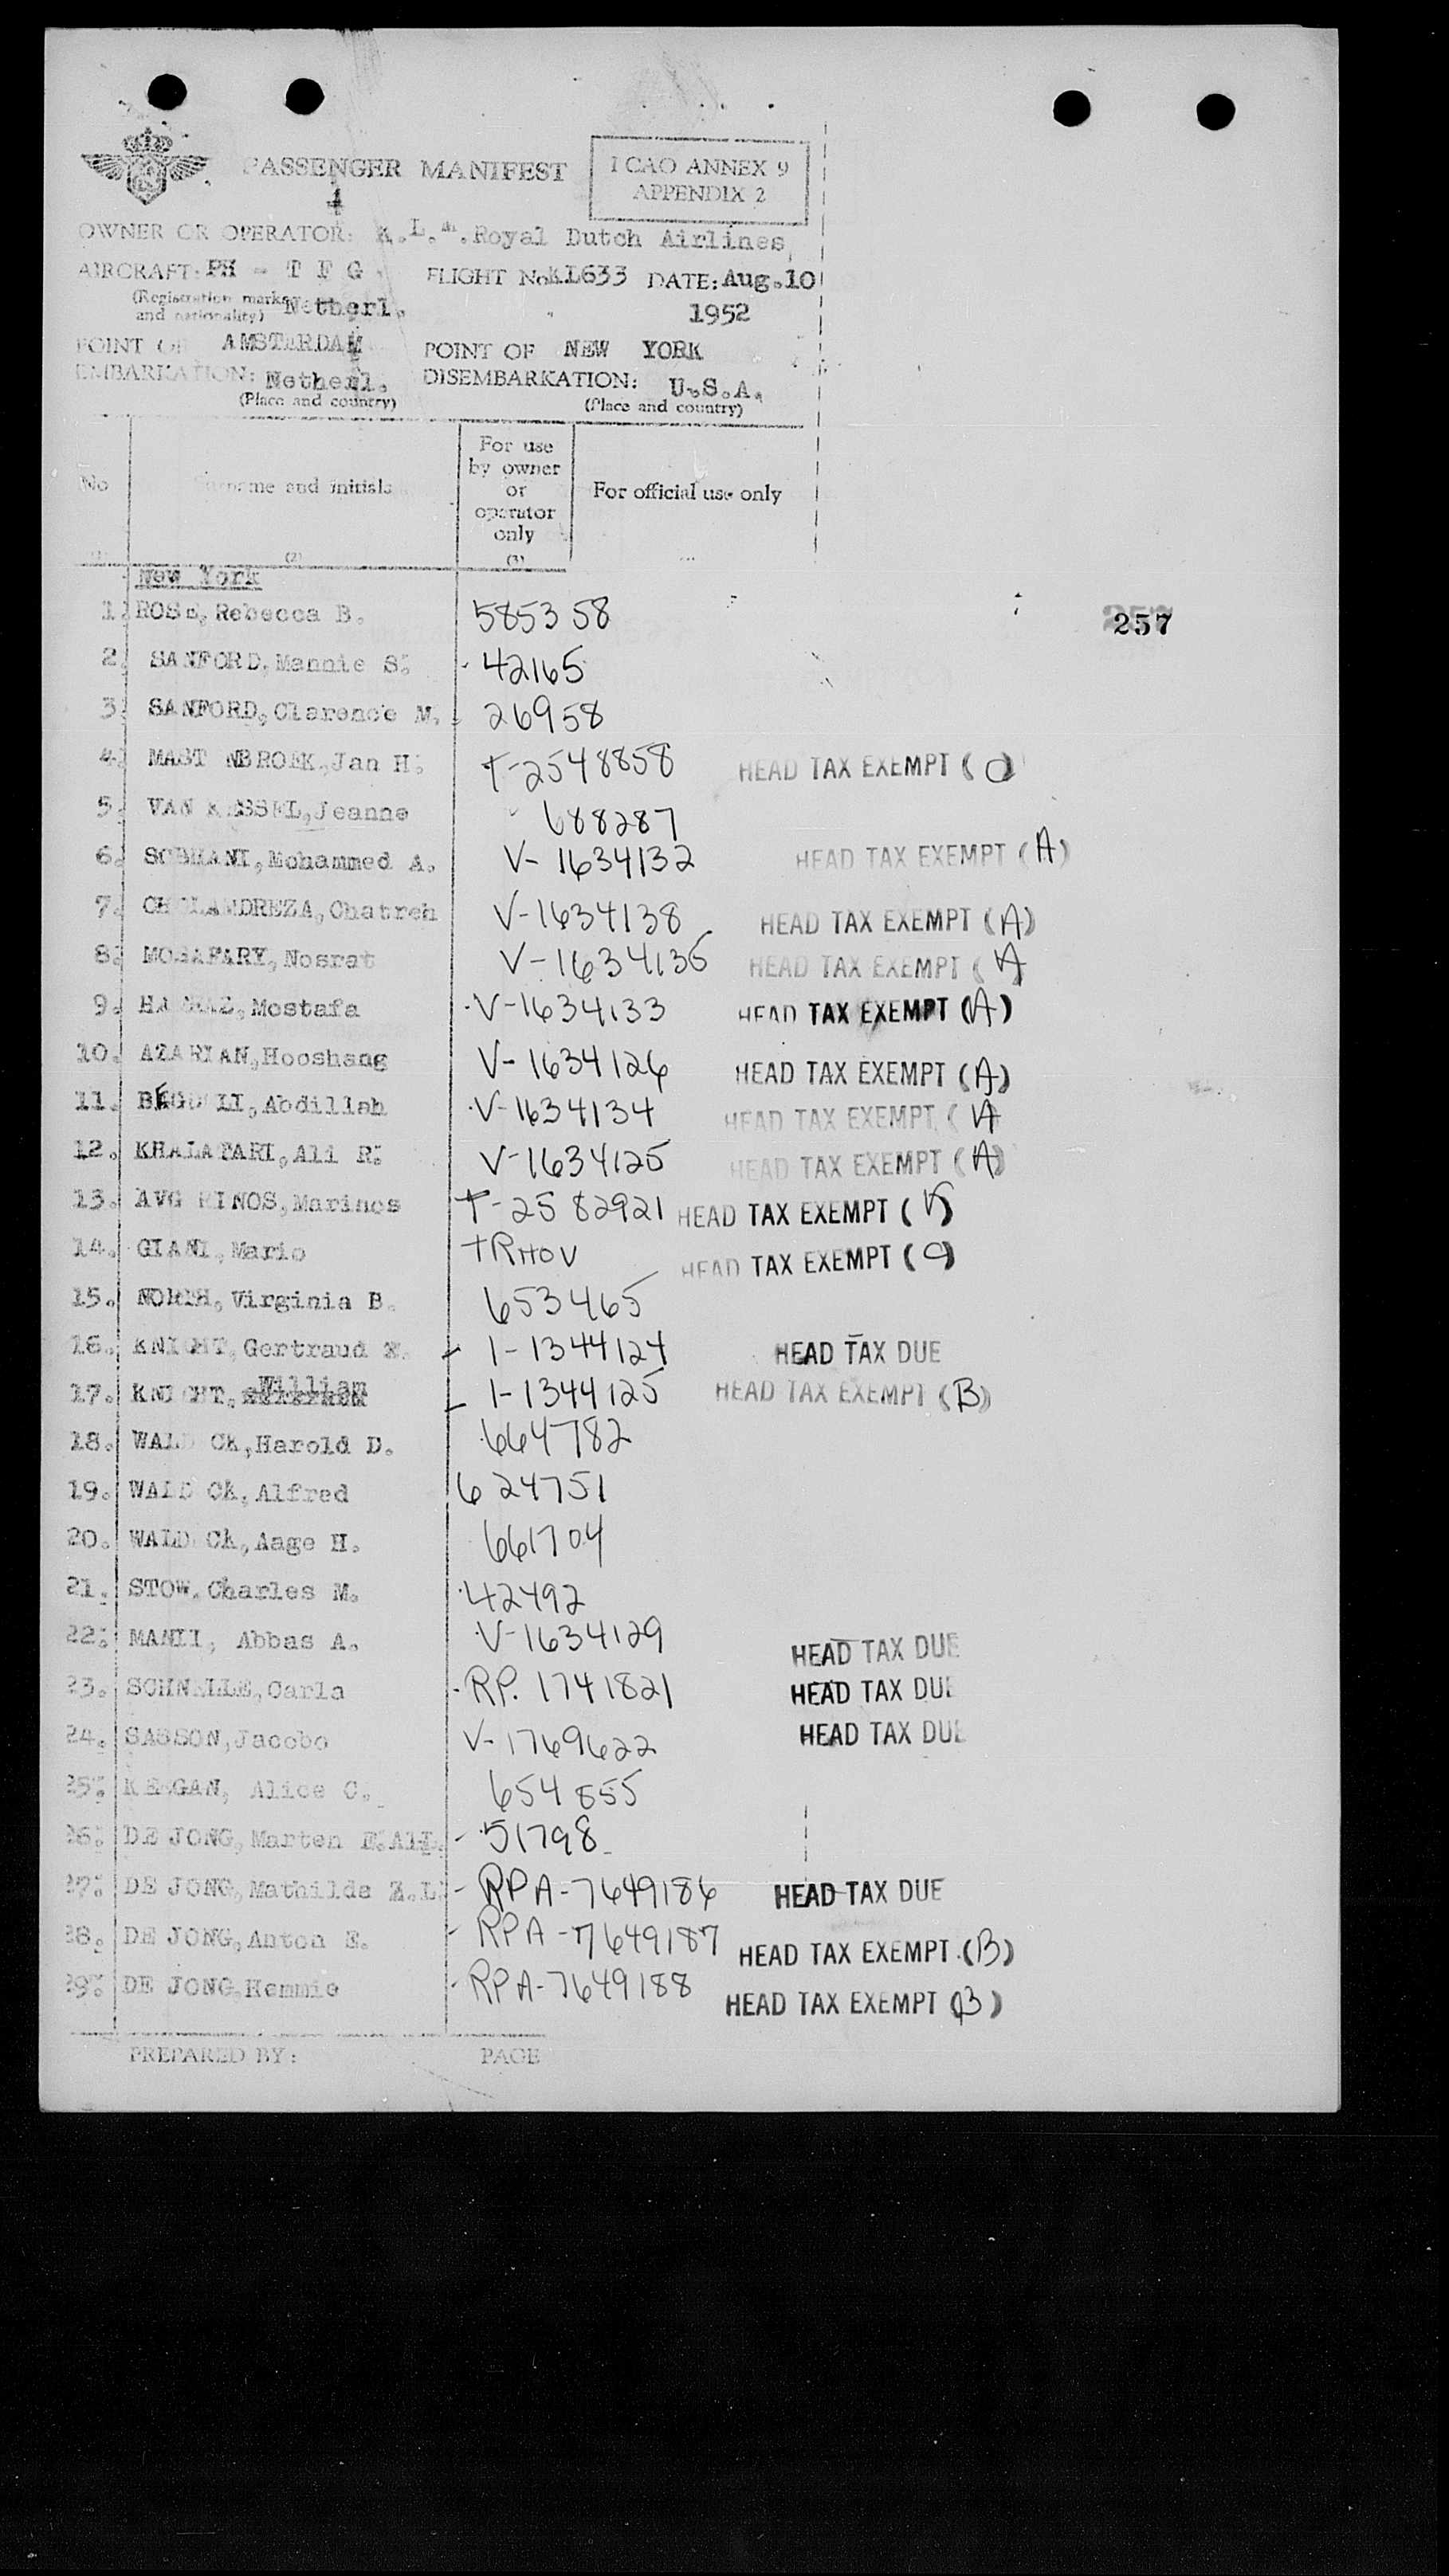 PASSENGER MANIFEST
I CAO ANNEX 9
APPENDIX 2
OWNER OR OPERATOR: K.L.M. Royal Dutch Airlines
AIRCRAFT: PH - T F G FLIGHT No. KL633 DATE: Aug.10
(Registration marks and nationality) Netherl. 1952
POINT OF EMBARKATION: AMSTERDAM Netherl.
(Place and country)
POINT OF DISEMBARKATION: NEW YORK U.S.A.
(Place and country)
No
Surname and initials
For use by owner or operator only
For official use only
(2)
(3)
New York
257
1. ROSS, Rebecca B. 585358
2. SANFORD, Mannie S. 42165
3. SANFORD, Clarence M. 26958
4. MAST NBROEK, Jan H. T-2548858 HEAD TAX EXEMPT
5. VAN KESSEL, Jeanne 688287
6. SOBHANI, Mohammed A. V-1634132 HEAD TAX EXEMPT (A)
7. Chatreh V-1634138 HEAD TAX EXEMPT (A)
8. Nosrat HEAD TAX EXEMPT (A)
9. Mostafa V-1634133 HEAD TAX EXEMPT (A)
10. AZARIAN, Hooshang V-1634126 HEAD TAX EXEMPT (A)
11. Abdillah V-1634134 HEAD TAX EXEMPT (A)
12. KHALATARI, Ali R. V-1634125 HEAD TAX EXEMPT (A)
13. AVG RINOS, Marinos T-2582921 HEAD TAX EXEMPT
14. GIANI, Mario TRHOV HEAD TAX EXEMPT (C)
15. NORTH, Virginia B. 653465
16. KNIGHT, Gertraud 1-1344124 HEAD TAX DUE
17. KNIGHT, William 1-1344125 HEAD TAX EXEMPT (B)
18. WALD CK, Harold D. 664782
19. WALD CK, Alfred 624751
20. WALD CK, Aage H. 661704
21. STOW, Charles M. 42492
22. MANII, Abbas A. V-1634129 HEAD TAX DUE
23. SCHNELLE, Carla RP. 1741821 HEAD TAX DUE
24. SASSON, Jacobo V-1769622 HEAD TAX DUE
25. KEAGAN, Alice C. 654855
26. DE JONG, Marten 51798
27. DE JONG, Mathilde RPA-7649186 HEAD TAX DUE
28. DE JONG, Anton E. RPA-7649187 HEAD TAX EXEMPT (B)
29. DE JONG, Hemmie RPA-7649188 HEAD TAX EXEMPT (B)
PREPARED BY: PAGE